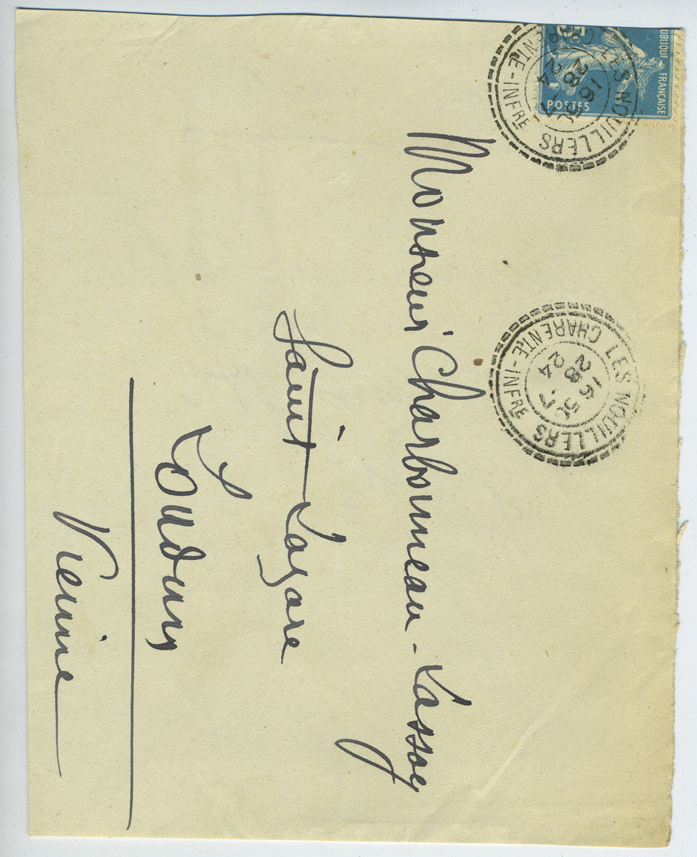 RÉPUBLIQUE FRANÇAISE
POSTES
LES NOUILLERS
CHARENTE-INFRE
LES NOUILLERS
CHARENTE-INFRE
16
28
2 24
Monsieur Charbonneau-Lassay
Saint Lazare
Loudun
Vienne